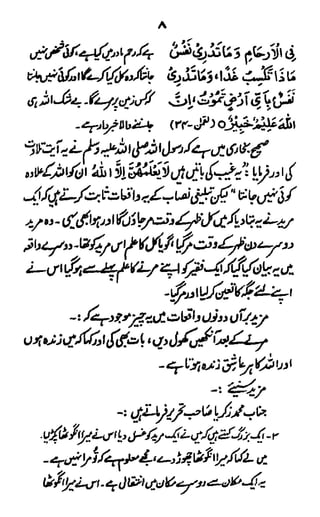 ۸
فِی الْاَرْحَامِ وَمَا تَدْرِیْ نَفْسٌ ہے کہ رحم مادر میں کیا ہے، کوئی شخص نہیں
مَاذَا تَکْسِبُ غَدًا، وَمَا تَدْرِیْ جانتا کہ وہ کل کیا کرے گا اور کوئی نہیں جانتا
نَفْسٌ بِاَیِّ اَرْضٍ تَمُوْتُ، اِنَّ کہ کس زمین پر مرے گا۔ بے شک اللہ ہی
اللہَ عَلِیْمٌ خَبِیْرٌ (لقمٰن -۳۴) جاننے والا خبردار ہے۔
صحیح بخاری میں ہے کہ رسول اللہ صلی اللہ علیہ وسلم نے یہ آیت تلاوت
کی اور فرمایا: "یہ غیب کی باتیں ہیں لَا یَعْلَمُھُنَّ اِلَّا اللہُ ان کو اللہ کے علاوہ
کوئی نہیں جانتا" لیکن تبلیغی نصاب کے یہ واقعات ثابت کرتے ہیں کہ ایک
مرید نے یہ بتا دیا کہ میں کل ظہر کے وقت مر جاؤں گا اور ہوا بھی یہی ۔ وہ مرید
دوسرے دن ظہر کے وقت مر گیا، گویا کل کا علم اس مرید کو تھا۔ دوسرے واقعہ
میں یہ بیان کیا گیا کہ ایک فقیر کو اپنے مرنے کا علم پہلے سے ہو گیا اس نے
اپنے لئے جگہ کا تعین کر لیا اور مر گیا۔
مزید برآں دونوں واقعات میں یہ چیز موجود ہے کہ :-
مرنے کے بعد آنکھیں کھول دیں، بات بھی کی اور کہا کہ میں زندہ ہوں
اور اللہ کا ہر عاشق زندہ ہوتا ہے۔
مزید سنیئے :-
جناب محمد زکریا صاحب تحریر فرماتے ہیں :-
۳- ایک بزرگ کہتے ہیں کہ میں نے ایک مرید کو غسل دیا اس نے میرا انگوٹھا پکڑ لیا۔
میں نے کہا کہ میرا انگوٹھا چھوڑ دے، مجھے معلوم ہے کہ تو مرا نہیں ہے۔
یہ ایک مکان سے دوسرے مکان میں انتقال ہے۔ اس نے میرا انگوٹھا